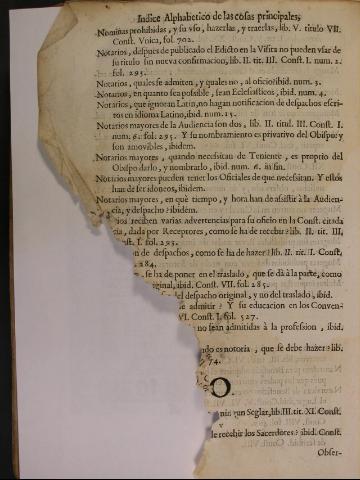 Indice Alphabetico de las cosas principales,
Nominas prohibidas, y su vso, hazerlas, y traerlas, lib. V. titulo VII.
Const. Vnica, fol. 702.
Notarios, despues de publicado el Edicto en la Visita no pueden vsar de
su titulo sin nueva confirmacion, lib. II. tit. III. Const. I. num. 2.
fol. 293.
Notarios, quales se admiten, y quales no, al oficio ibid. num. 3.
Notarios, en quanto sea possible, sean Eclesiasticos, ibid. num. 4.
Notarios, que ignoran Latin, no hagan notificacion de despachos escri-
tos en idioma Latino, ibid. num. 15.
Notarios mayores de la Audiencia son dos, lib. II. titul. III. Const. I.
num. 6. fol. 295. Y su nombramiento es privativo del Obispo: y
son amovibles, ibidem.
Notarios mayores, quando necessitan de Teniente, es proprio del
Obispo darlo, y nombrarlo, ibid. num. 6. in fin.
Notarios mayores pueden tener los Oficiales de que necesitan. Y estos
han de ser idoneos, ibidem.
Notarios mayores, en què tiempo, y hora han de assistir à la Audien-
cia, y despacho? ibidem.
rios reciben varias advertencias para su oficio en la Const. citada
cia, dada por Receptores, como se ha de recebir? lib. II. tit. III,
st. I. fol. 293.
on de despachos, como se ha de hazer? lib. II. tit. I. Const,
284.
, se ha de poner en el traslado, que se dà à la parte, como
iginal, ibid. Const. VII. fol. 285.
del despacho original, y no del traslado, ibid.
e admitir? Y su educacion en los Conven-
VI. Const. I. fol. 527.
no sean admitidas à la profession, ibid,
do es notoria, que se debe hazer? lib.
74.
O.
ningun Seglar, lib. III. tit. XI. Const.
le recebir los Sacerdotes? ibid. Const.
Obser-